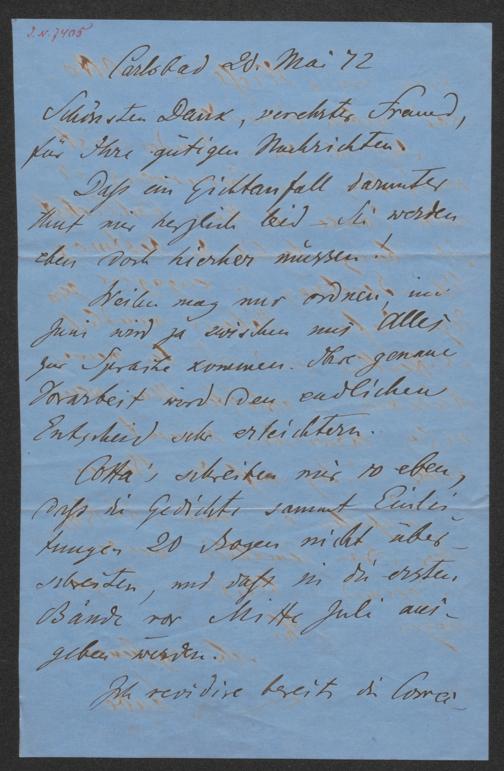 I.N. 7405
Carlsbad 20. Mai 72
Schönsten Dank, verehrter Freund,
für Ihre gütigen Nachrichten.
Daß ein Gichtanfall darunter
thut mir herzlich leid. Sie werden
eben doch hierher müssen!
Weilen mag nur ordnen, im
Juni wird ja zwischen uns Alles
zur Sprache kommen. Ihre genaue
Vorarbeit wird den endlichen
Entscheid sehr erleichtern.
Cotta's schreiben mir so eben,
daß die Gedichte sammt Einlei
tungen 20 Bogen nicht über-
schreiten, und daß sie die ersten
Bände vor Mitte Juli aus-
geben werden.
Ich revidire bereits die Correc-